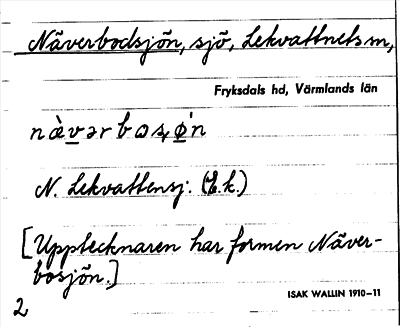 Näverbodsjön, sjö, Lekvattnets sn,
Fryksdals hd, Värmlands län
N. Lekvattensj. (E.k.)
[Upptecknaren har formen Näver-
bosjön.]
2
ISAK WALLIN 1910–11